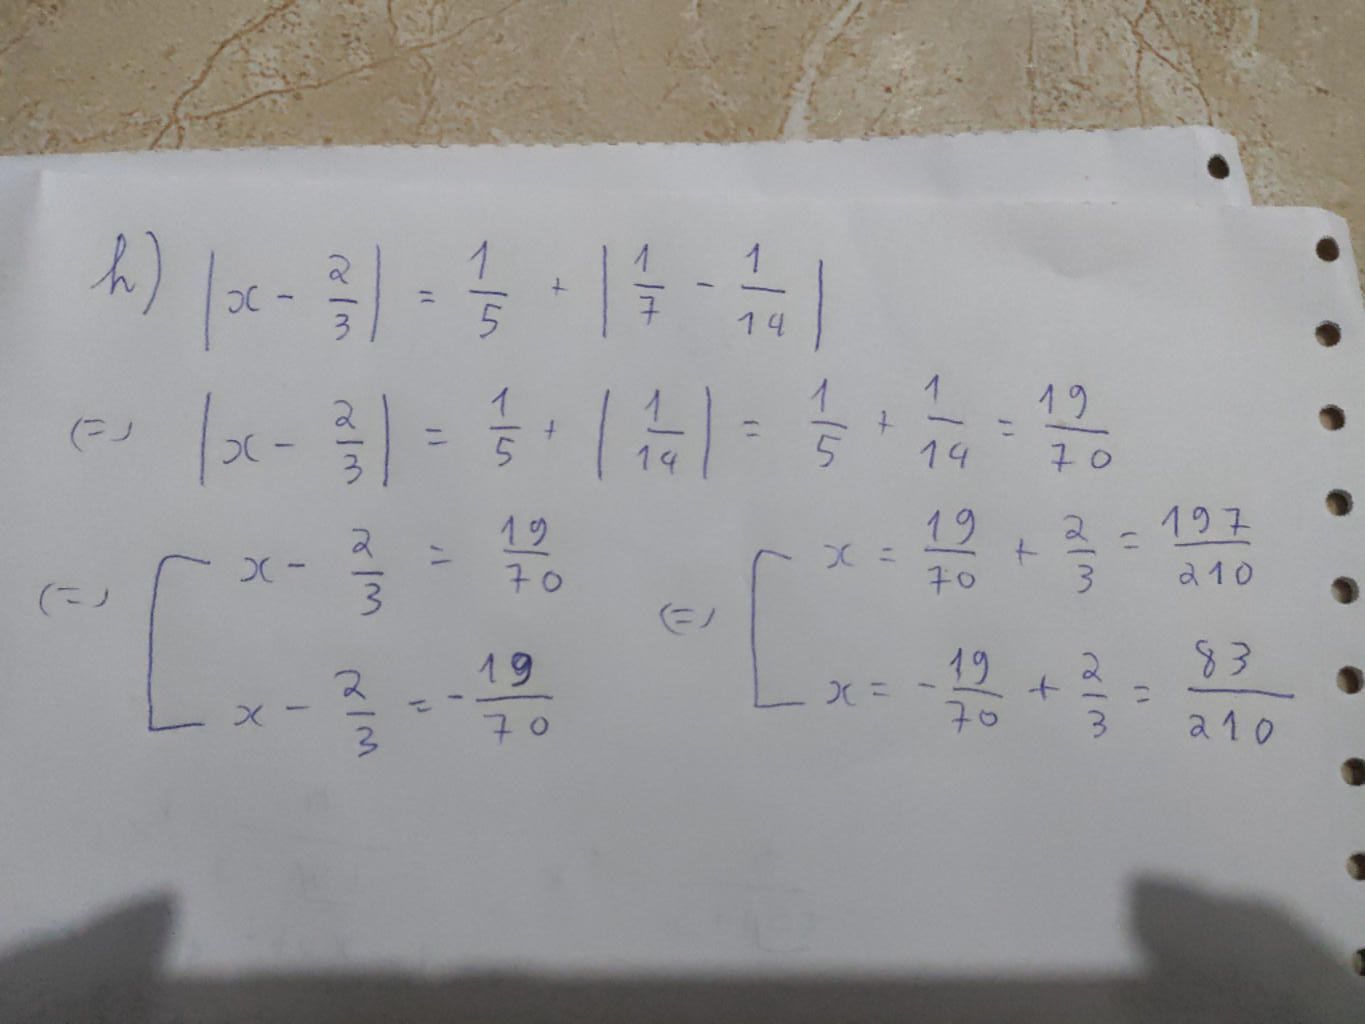 h) |x - 2/3| = 1/5 + |1/7 - 1/14|
(=) |x - 2/3| = 1/5 + |1/14| = 1/5 + 1/14 = 19/70
(=) [ x - 2/3 = 19/70 (=) [ x = 19/70 + 2/3 = 197/210
x - 2/3 = - 19/70 x = - 19/70 + 2/3 = 83/210